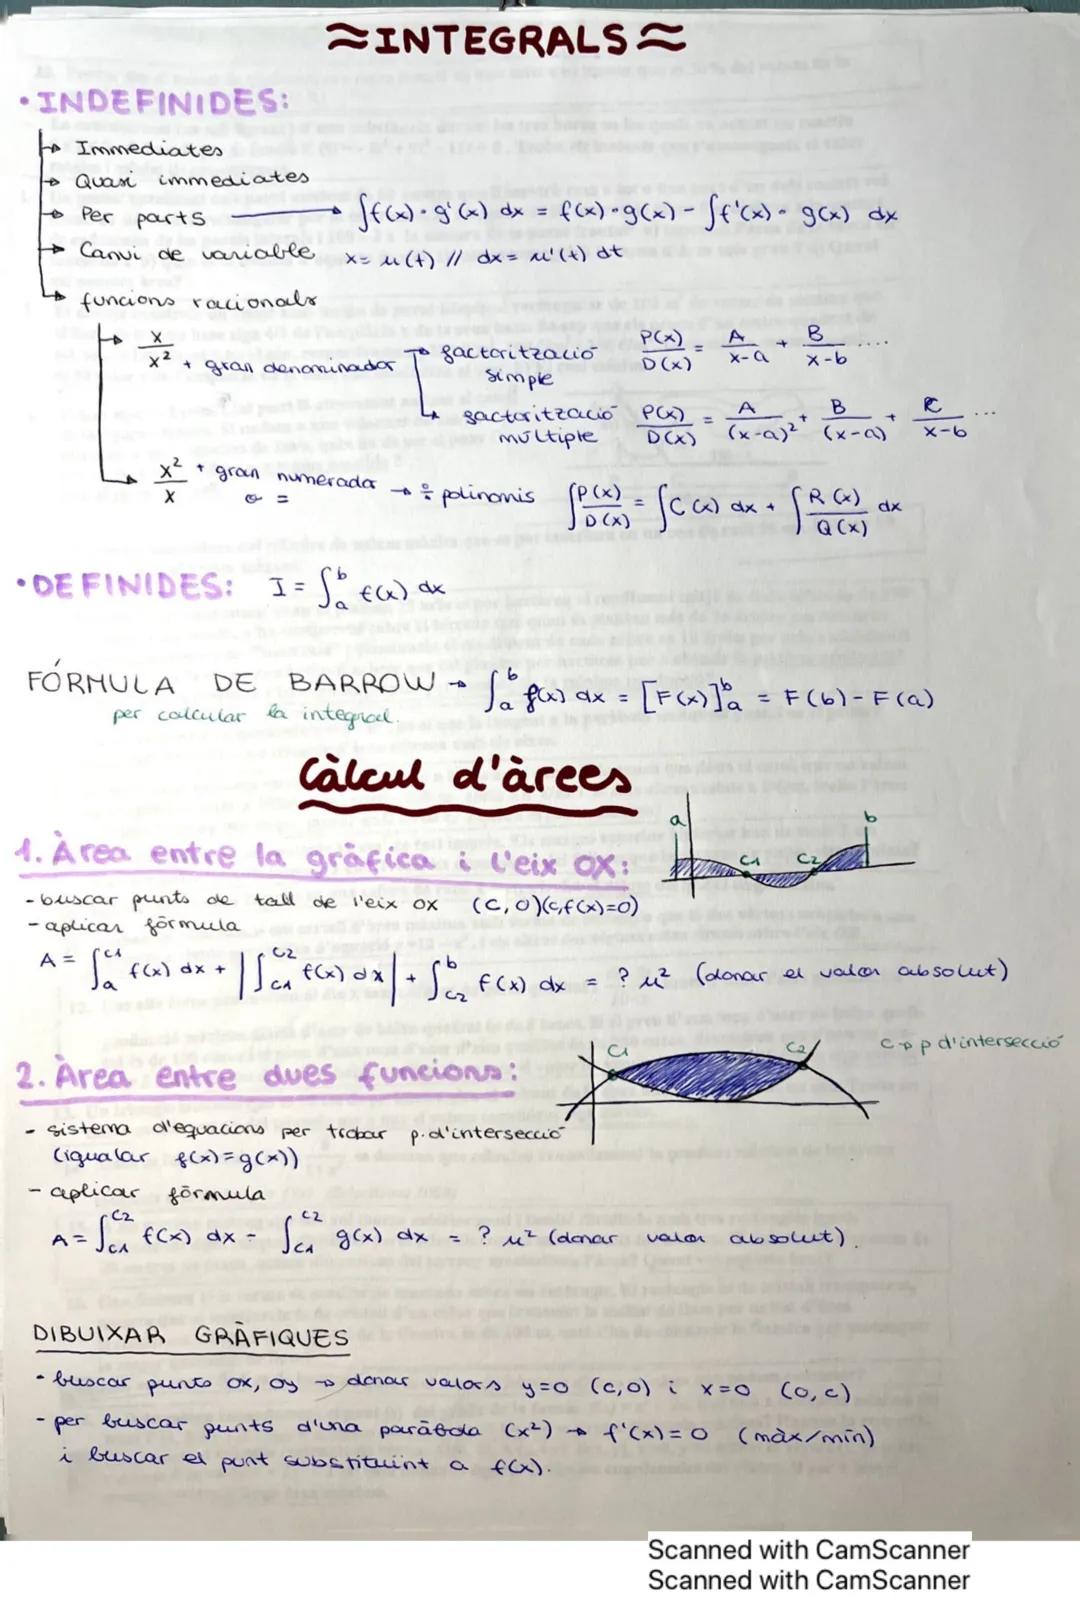 ≈INTEGRALS≈
• INDEFINIDES:
→ Immediates
→ Quasi immediates
→ Per parts → ∫f(x)·g'(x) dx = f(x)·g(x) - ∫f'(x)·g(x) dx
→ Canvi de variable x = u(t) // dx = u'(t) dt
→ funcions racionals
→ x/x² + gran denominador → factorització simple P(x)/D(x) = A/(x-a) + B/(x-b) ....
→ factorització múltiple P(x)/D(x) = A/(x-a)² + B/(x-a) + C/(x-b) ...
→ x²/x + gran numerador o = → ÷ polinomis ∫P(x)/D(x) = ∫C(x) dx + ∫R(x)/Q(x) dx
• DEFINIDES: I = ∫ₐᵇ f(x) dx
FÓRMULA DE BARROW → ∫ₐᵇ f(x) dx = [F(x)]ₐᵇ = F(b) - F(a)
per calcular la integral.
Càlcul d'àrees
a b
1. Àrea entre la gràfica i l'eix OX:
C1 C2
- buscar punts de tall de l'eix OX (C,0)(C,f(x)=0)
- aplicar fórmula
A = ∫ₐ^C1 f(x) dx + |∫_C1^C2 f(x) dx| + ∫_C2^b f(x) dx = ? u² (donar el valor absolut)
C1 C2 C→p d'intersecció
2. Àrea entre dues funcions:
- sistema d'equacions per trobar p.d'intersecció
(igualar f(x)=g(x))
- aplicar fórmula
A = ∫_C1^C2 f(x) dx - ∫_C1^C2 g(x) dx = ? u² (donar valor absolut).
DIBUIXAR GRÀFIQUES
- buscar punts ox, oy → donar valors y=0 (c,0) i x=0 (0,c)
- per buscar punts d'una paràbola (x²) → f'(x)=0 (màx/mín)
i buscar el punt substituint a f(x).
Scanned with CamScanner
Scanned with CamScanner